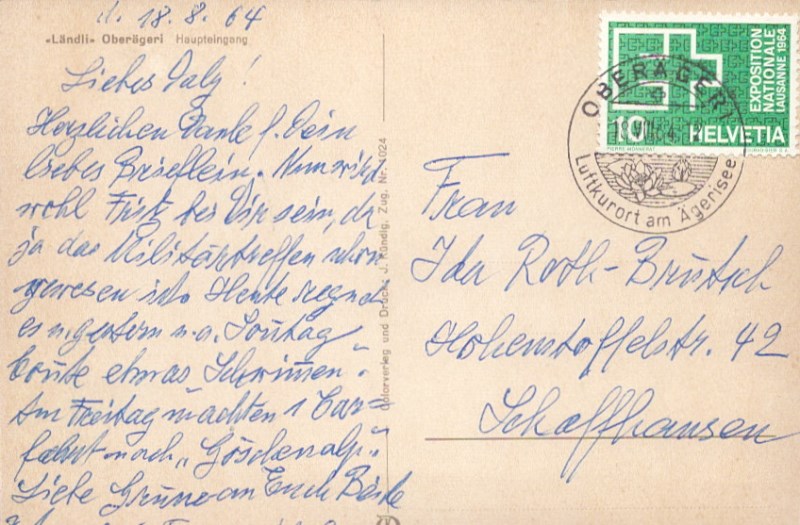 d. 18.8.64
«Ländli» Oberägeri Haupteingang
Liebes Daly!
Herzlichen Dank f. Dein
liebes Brieflein. Nun wird
wohl Fritz bei Dir sein, da
ja das Militärtreffen schon
gewesen ist. Heute regnet
es u. gestern u. a. Sontag
konte etwas Schwimen.
Am Freitag machten 1 Car=
fahrt nach „Göschenalp."
Liebe Grüsse an Euch Beide
Colorverlag und Druck: J. Kündig, Zug. Nr. 1024
EXPOSITION
NATIONALE
LAUSANNE 1964
10
HELVETIA
OBERÄGERI
Luftkurort am Ägerisee
Frau
Ida Roth-Brütsch
Hohenstoffelstr. 42
Schaffhausen